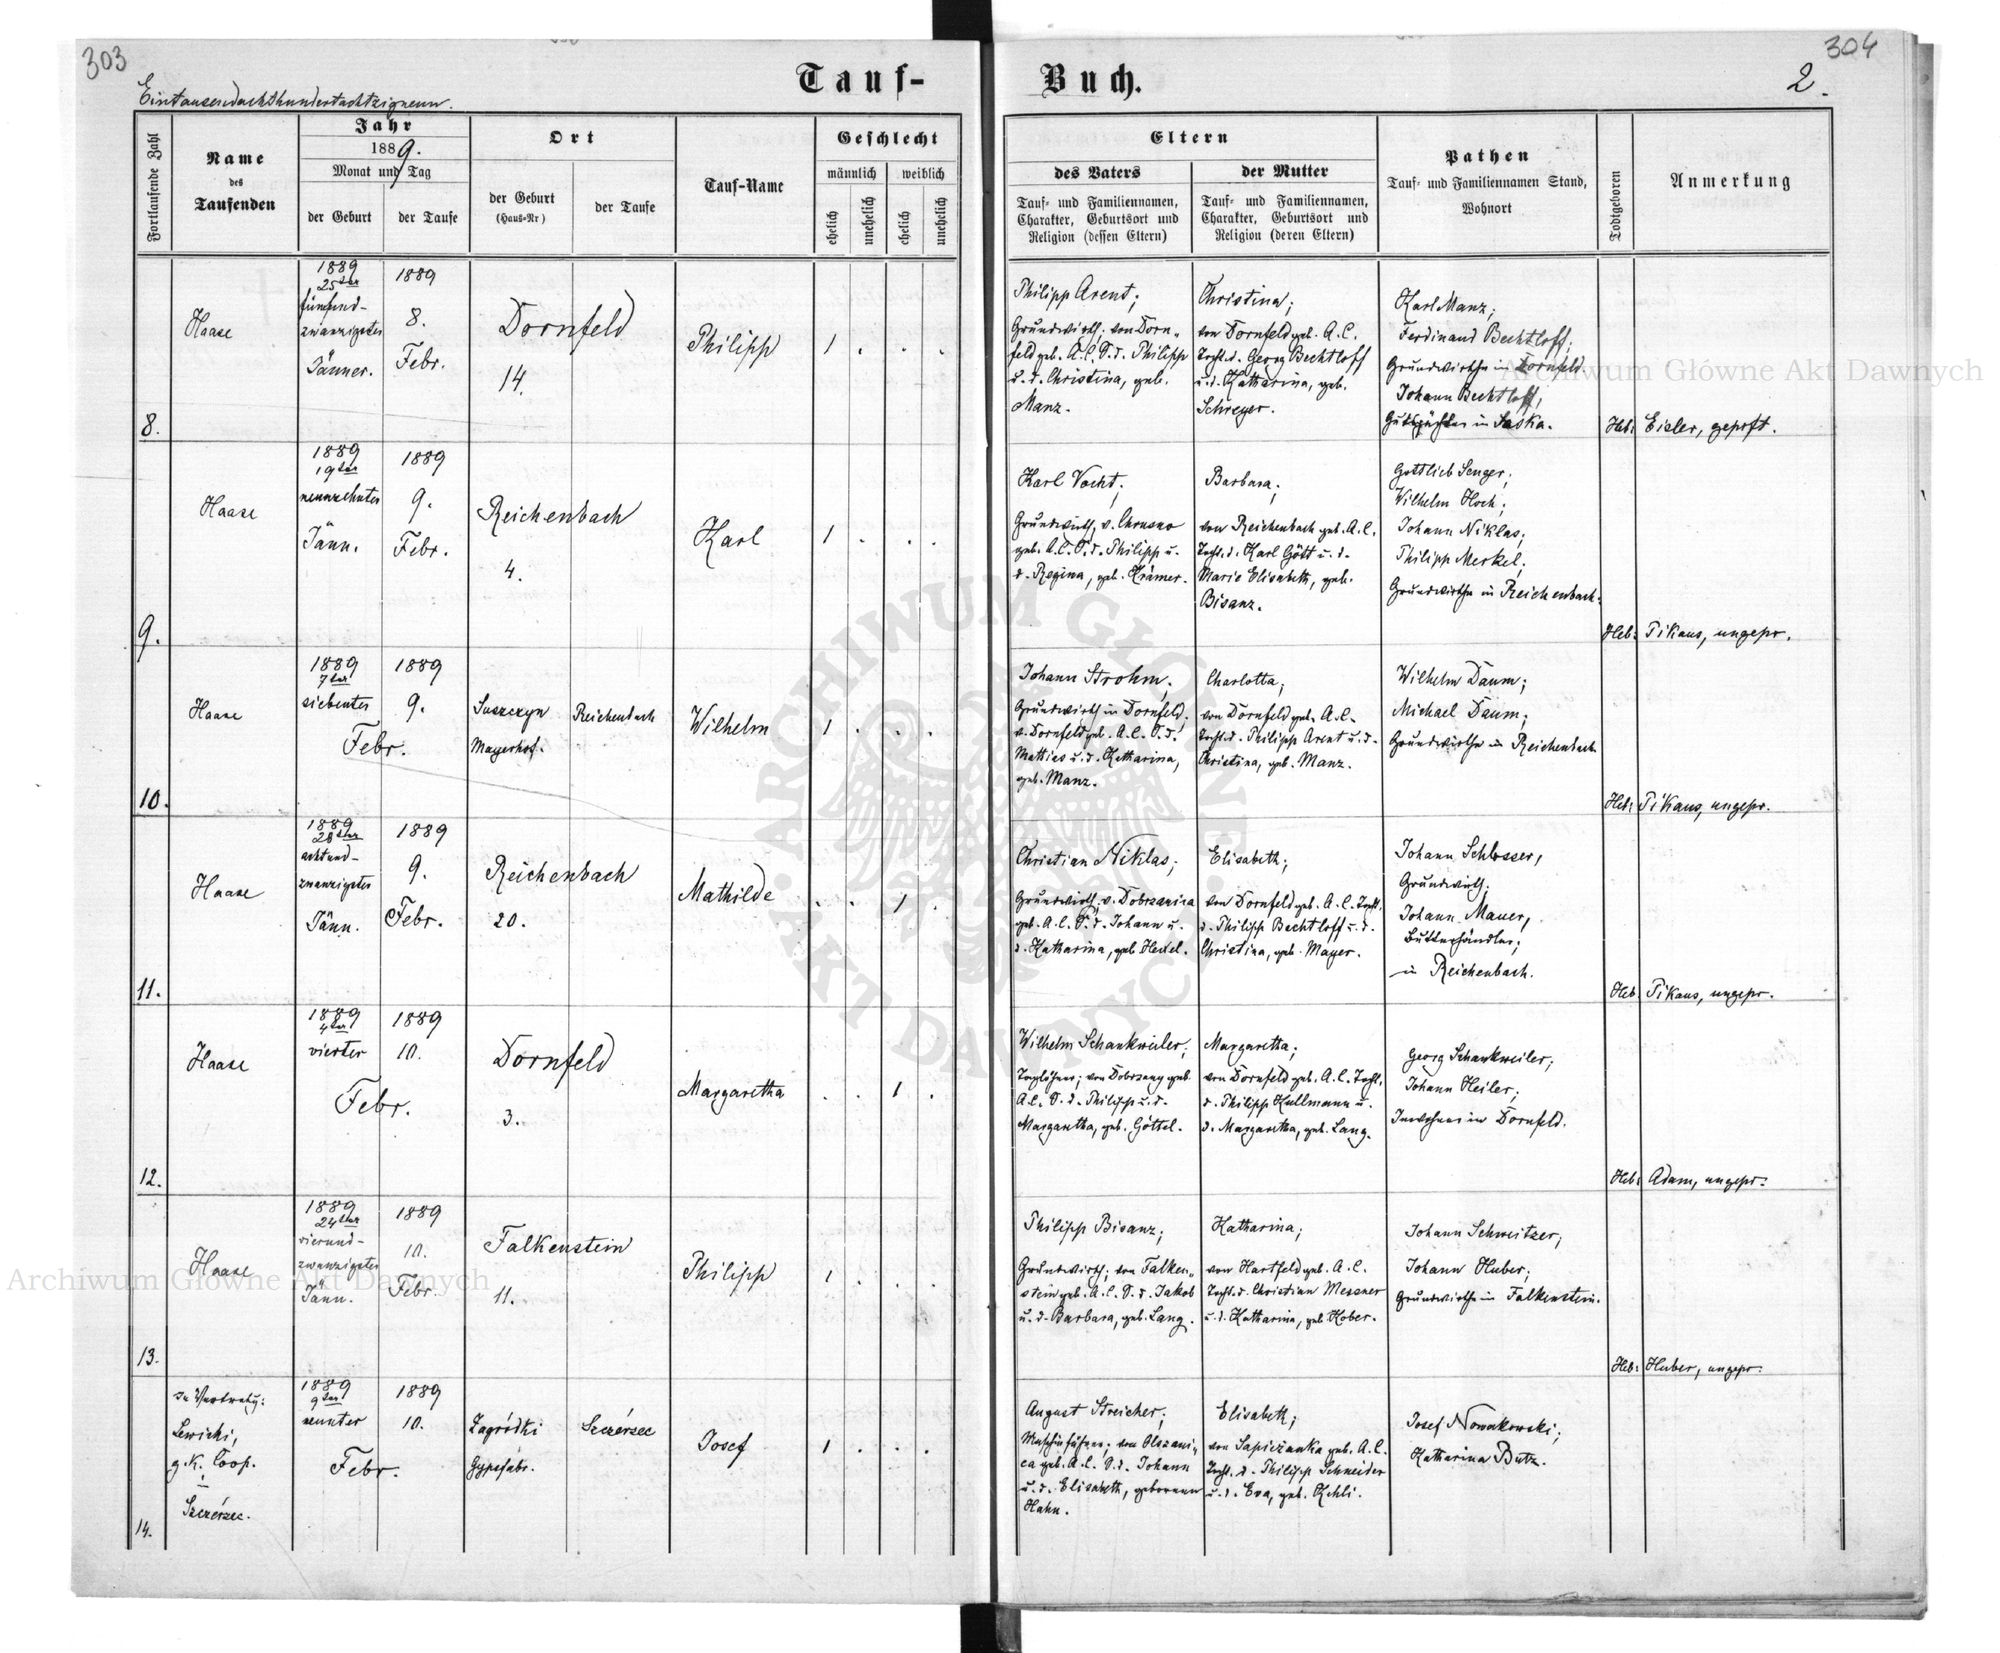 303
304
Tauf-Buch.
2.
Eintausendachthundertachtzigneun.
Fortlaufende Zahl
Name
des
Taufenden
Jahr
1889.
Monat und Tag
der Geburt
der Taufe
Ort
der Geburt
(Haus-Nr)
der Taufe
Tauf-Name
Geschlecht
männlich
weiblich
ehelich
unehelich
ehelich
unehelich
Eltern
des Vaters
Tauf- und Familiennamen,
Charakter, Geburtsort und
Religion (dessen Eltern)
der Mutter
Tauf- und Familiennamen,
Charakter, Geburtsort und
Religion (deren Eltern)
Pathen
Tauf- und Familiennamen Stand,
Wohnort
Todtgeboren
Anmerkung
8.
Haase
1889
25ter
fünfund-
zwanzigster
Jänner.
1889
8.
Febr.
Dornfeld
14.
Philipp
1 . . .
Philipp Arent;
Grundwirth; von Dorn-
feld geb. A.C. S.d. Philipp
u. d. Christina, geb.
Manz.
Christina;
von Dornfeld geb. A.C.
Tocht. d. Georg Bechtloff
u. d. Katharina, geb.
Schreyer.
Karl Manz;
Ferdinand Bechtloff;
Grundwirthe in Dornfeld.
Johann Bechtloff,
Gutspächter in Saska.
Heb: Eisler, geprft.
9.
Haase
1889
19ter
neunzehnter
Jänn.
1889
9.
Febr.
Reichenbach
4.
Karl
1 . . .
Karl Vocht;
Grundwirth, v. Chrusno
geb. A.C. S.d. Philipp u.
d. Regina, geb. Krämer.
Barbara;
von Reichenbach geb. A.C.
Tocht. d. Karl Gött u. d.
Marie Elisabeth, geb.
Bisanz.
Gottlieb Senger;
Wilhelm Hoch;
Johann Niklas;
Philipp Merkel;
Grundwirthe in Reichenbach.
Heb: Pikaus, ungepr.
10.
Haase
1889
7ter
siebenter
Febr.
1889
9.
Suszczyn
Mayerhof.
Reichenbach
Wilhelm
1 . . .
Johann Strohm;
Grundwirth in Dornfeld.
v. Dornfeld geb. A.C. S.d.
Mathias u. d. Katharina,
geb. Manz.
Charlotta;
von Dornfeld geb. A.C.
Tocht. d. Philipp Arent u. d.
Christina, geb. Manz.
Wilhelm Daum;
Michael Daum;
Grundwirthe in Reichenbach
Heb: Pikaus, ungepr.
11.
Haase
1889
28ter
achtund-
zwanzigster
Jänn.
1889
9.
Febr.
Reichenbach
20.
Mathilde
. . 1 .
Christian Niklas;
Grundwirth, v. Dobrzanica
geb. A.C. S.d. Johann u.
d. Katharina, geb Hexel.
Elisabeth;
von Dornfeld geb. A.C. Tocht.
d. Philipp Bechtloff u. d.
Christina, geb. Mayer.
Johann Schlosser,
Grundwirth;
Johann Mauer,
Butterhändler;
in Reichenbach.
Heb: Pikaus, ungepr.
12.
Haase
1889
4ter
vierter
Febr.
1889
10.
Dornfeld
3.
Margaretha
. . 1 .
Wilhelm Schankweiler;
Taglöhner; von Dobrzany geb.
A.C. S.d. Philipp u. d.
Margaretha, geb. Göttel.
Margaretha;
von Dornfeld geb. A.C. Tocht.
d. Philipp Kullmann u.
d. Margaretha, geb. Lang.
Georg Schankweiler;
Johann Heiler;
Inwohner in Dornfeld.
Heb: Adam, ungepr.
13.
Haase
1889
24ter
vierund-
zwanzigster
Jänn.
1889
10.
Febr.
Falkenstein
11.
Philipp
1 . . .
Philipp Bisanz;
Grundwirth; von Falken-
stein geb. A.C. S.d. Jakob
u. d. Barbara, geb. Lang.
Katharina;
von Hartfeld geb. A.C.
Tocht. d. Christian Messner
u. d. Katharina, geb Kober.
Johann Schweitzer;
Johann Huber;
Grundwirthe in Falkenstein.
Heb: Huber, ungepr.
14.
in Vertretg:
Lewicki,
g.k. Coop.
Szczérzec.
1889
9ter
neunter
Febr.
1889
10.
Zagródki
Gypsfabr.
Szczérzec
Josef
1 . . .
August Streicher;
Maschinführer; von Olszani-
ca geb. A.C. S.d. Johann
u. d. Elisabeth, geborenen
Hahn.
Elisabeth;
von Sapieżanka geb. A.C.
Tocht. d. Philipp Schneider
u. d. Eva, geb. Kehli.
Josef Nowakowski;
Katharina Butz.
Archiwum Główne Akt Dawnych
Archiwum Główne Akt Dawnych
ARCHIWUM GŁÓWNE AKT DAWNYCH